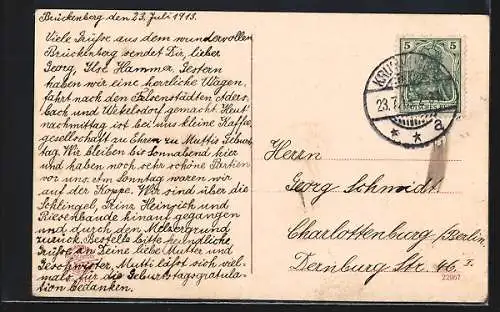 Brückenberg den 23. Juli 1913.
Viele Grüße aus dem wundervollen
Brückenberg sendet Dir, lieber
Georg, Ilse Hammer. Gestern
haben wir eine herrliche Wagen,
fahrt nach den Felsenstädten Aders,
bach und Wekelsdorf gemacht. Heut
nachmittag ist bei uns kleine Kaffee
gesellschaft zu Ehren zu Muttis Geburts
tag. Wir bleiben bis Sonnabend hier
und haben noch sehr schöne Partien
vor uns. Am Sonntag waren wir
auf der Koppe. Wir sind über die
Schlingel, Prinz Heinrich und
Riesenbaude hinauf gegangen
und durch den Melzergrund
zurück. Bestelle bitte freundliche
Grüße an Deine liebe Mutter und
Geschwister, Mutti läßt sich viel-
mals für die Geburtstagsgratula-
tion bedanken.
5 5
23.7.
* * a
Herrn
Georg Schmidt
Charlottenburg /Berlin
Dernburg Str. 46 I.
22967